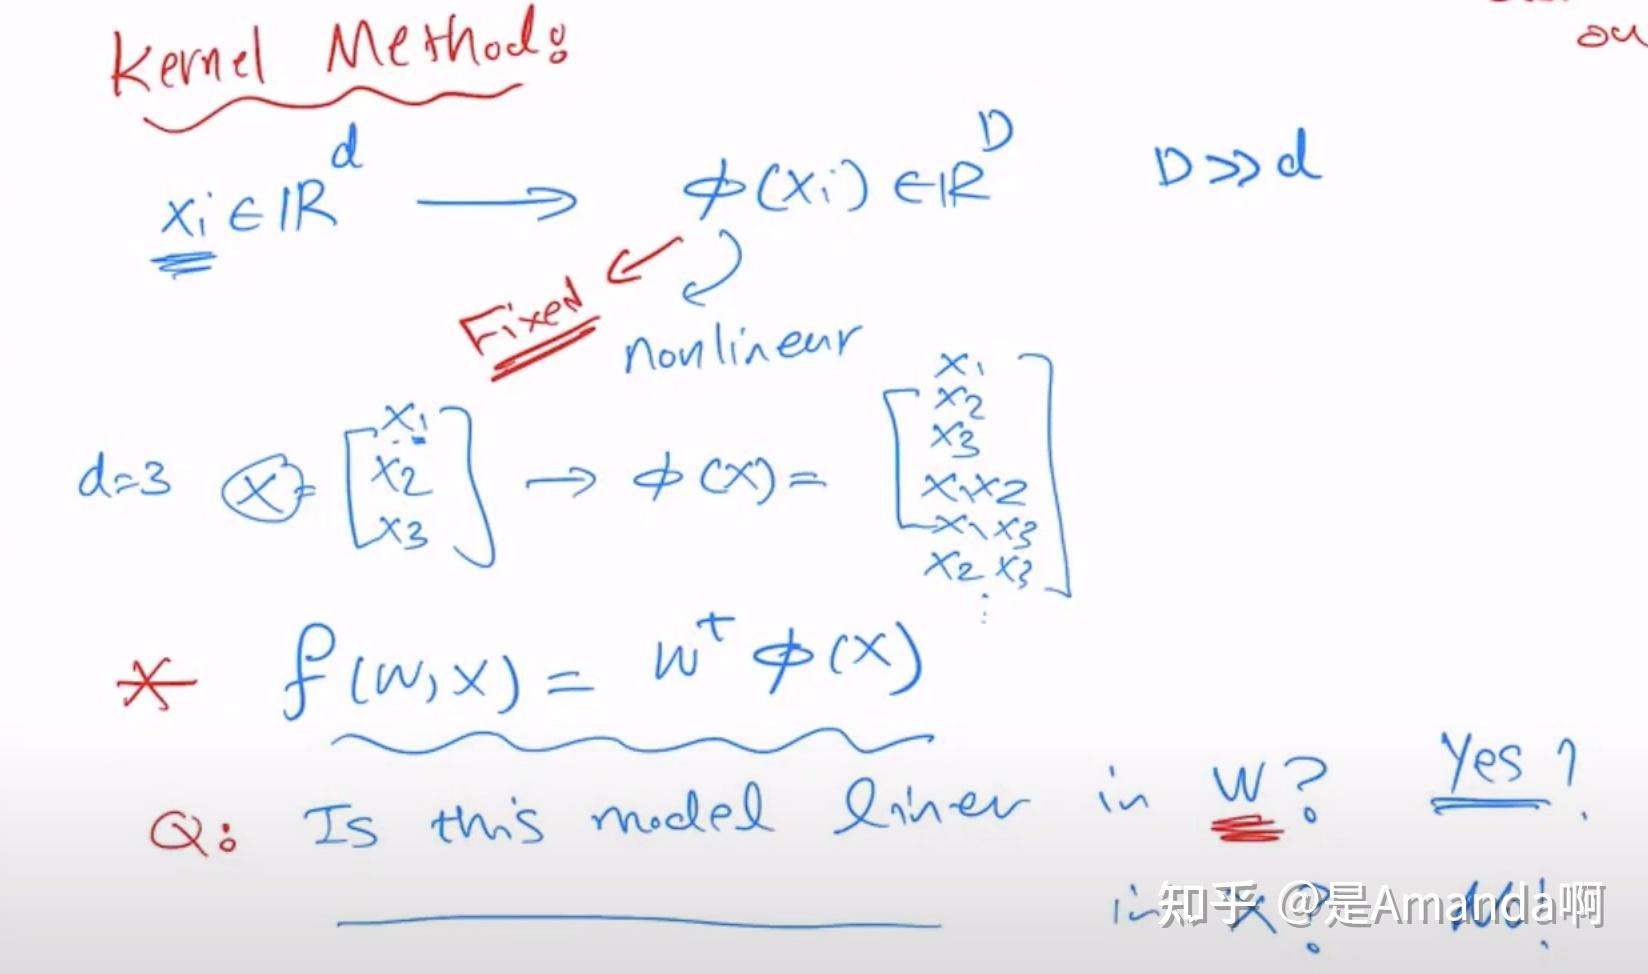 Kernel Method:
ou
xi ∈ IR^d ⟶ φ(xi) ∈ IR^D D >> d
Fixed
nonlinear
d=3 x = [x1 x2 x3] → φ(x) = [x1 x2 x3 x1x2 x1x3 x2x3 ⋮]
* f(w,x) = w^T φ(x)
Q: Is this model liner in w? Yes!
in x? No!
知乎 @是Amanda啊